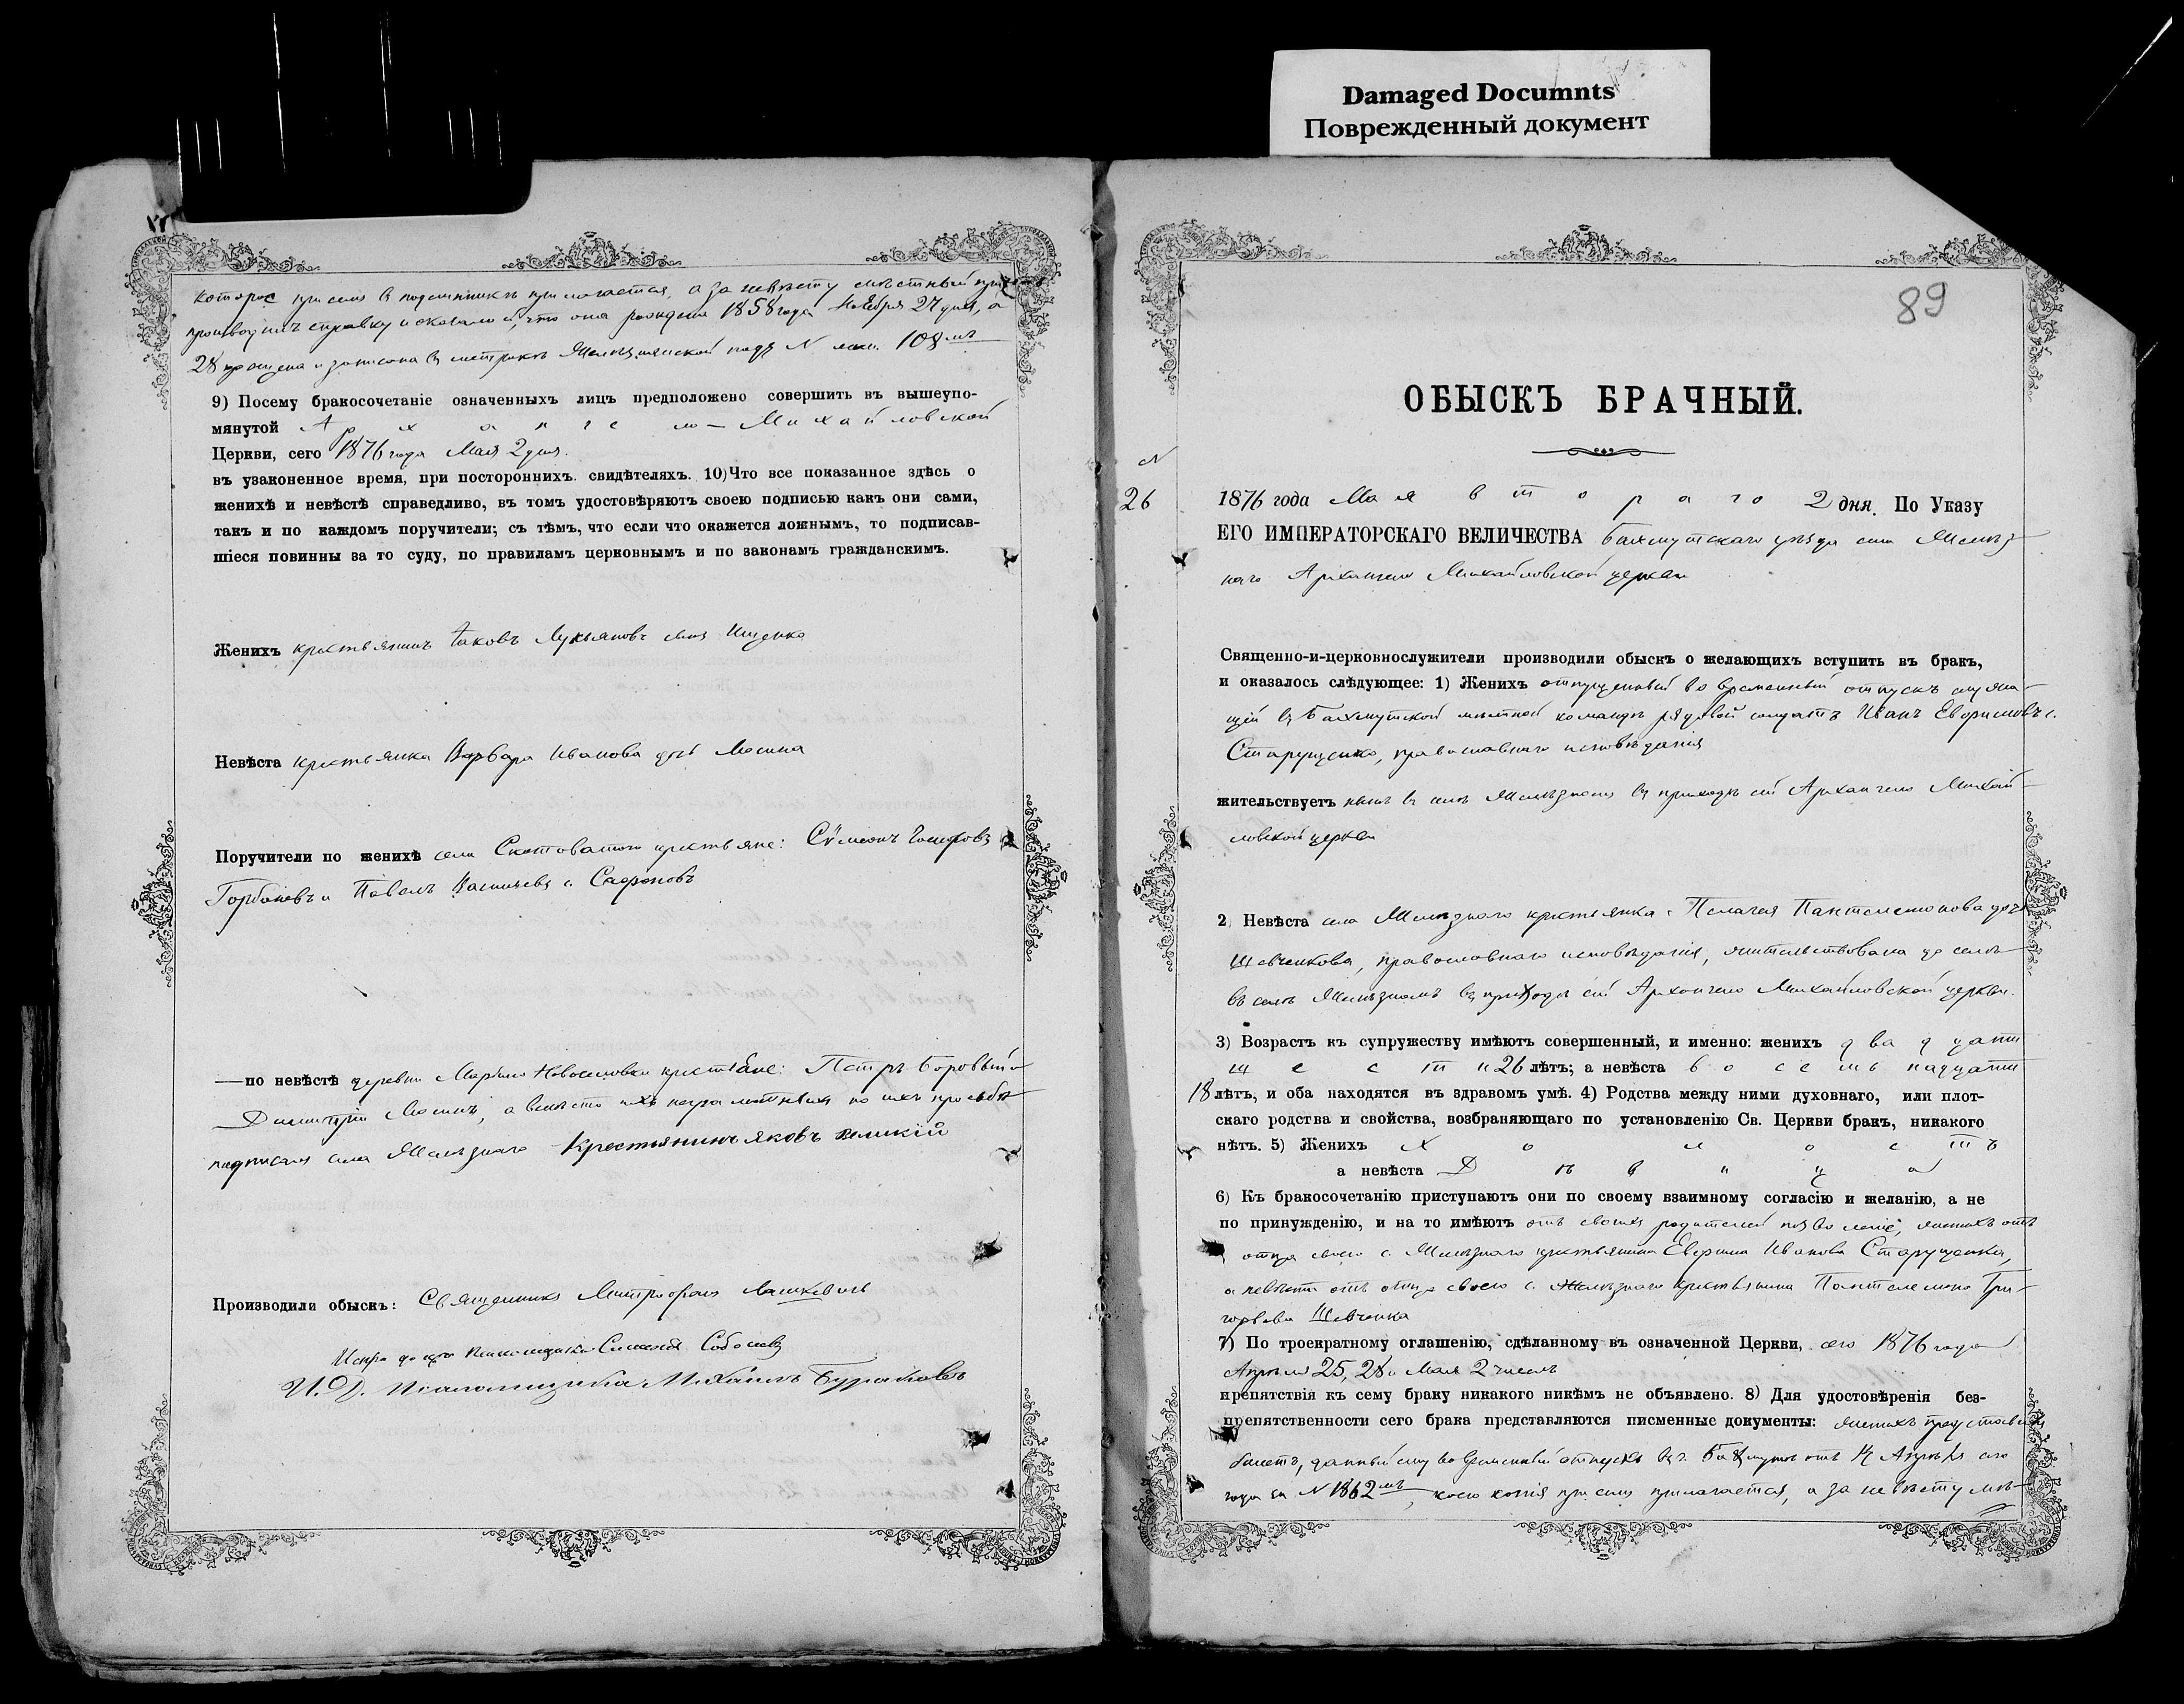 Damaged Documnts
Поврежденный документ
которое при семъ въ подлинникѣ прилагается, а за невѣсту мѣстный причтъ
производилъ справку и оказалось, что она рождена 1858 года Ноября 27 дня, а
28 крещена и записана въ метрикѣ Желѣзнянской подъ N жен. 108 мъ
9) Посему бракосочетаніе означенныхъ лицъ предположено совершить въ вышеупо-
мянутой Архангело-Михайловской
Церкви, сего 1876 года Мая 2 дня.
въ узаконенное время, при постороннихъ свидѣтеляхъ. 10) Что все показанное здѣсь о
женихѣ и невѣстѣ справедливо, въ томъ удостовѣряютъ своею подписью какъ они сами,
такъ и по каждомъ поручители; съ тѣмъ, что если что окажется ложнымъ, то подписав-
шіеся повинны за то суду, по правиламъ церковнымъ и по законамъ гражданскимъ.
Женихъ крестьянинъ Іаковъ Лукьяновъ сынъ Ищенко
Невѣста крестьянка Варвара Иванова дочь Мосина
Поручители по женихѣ села Скотоватого крестьяне: Сѵмеонъ Іосифовъ
Горбаневъ и Павелъ Васильевъ с. Сафоновъ
—по невѣстѣ деревни Марьино Новоселовки крестьяне: Петръ Боровый и
Димитрій Мосинъ, а вмѣсто ихъ неграмотныхъ по ихъ просьбѣ
подписался села Желѣзнаго Крестьянинъ Яковъ Великій
Производили обыскъ: Священникъ Митрофанъ Лашкевичъ
Псаломщикъ Симеонъ
И. Д. псаломщика Михаилъ Бураковъ
89
ОБЫСКЪ БРАЧНЫЙ.
N
26
1876 года Мая втораго 2 дня. По Указу
ЕГО ИМПЕРАТОРСКАГО ВЕЛИЧЕСТВА Бахмутскаго уѣзда села Желѣз-
наго Архангело Михайловской церкви
Священно-и-церковнослужители производили обыскъ о желающихъ вступить въ бракъ,
и оказалось слѣдующее: 1) Женихъ отпущенный во временный отпускъ служа-
щій въ Бахмутской мѣстной командѣ рядовой солдатъ Иванъ Евфимовъ с.
Старущенко, православнаго исповѣданія
жительствуетъ нынѣ въ селѣ Желѣзномъ въ приходѣ сей Архангело Михай-
ловской церкви
2 Невѣста села Желѣзнаго крестьянка: Пелагея Пантелеимонова дочь
Шевченкова, православнаго исповѣданія, жительствовала до селѣ
въ селѣ Желѣзномъ въ приходѣ сей Архангело Михайловской церкви.
3) Возрастъ къ супружеству имѣютъ совершенный, и именно: женихъ двадцати
шести 26 лѣтъ; а невѣста восемьнадцати
18 лѣтъ, и оба находятся въ здравомъ умѣ. 4) Родства между ними духовнаго, или плот-
скаго родства и свойства, возбраняющаго по установленію Св. Церкви бракъ, никакого
нѣтъ. 5) Женихъ Холостъ
а невѣста Дѣвица
6) Къ бракосочетанію приступаютъ они по своему взаимному согласію и желанію, а не
по принужденію, и на то имѣютъ отъ своихъ родителей позволеніе, женихъ отъ
отца своего с. Желѣзнаго крестьянина Евфима Иванова Старущенка,
а невѣста отъ отца своего с. Желѣзнаго крестьянина Пантелеимона Гри-
горьева Шевченка
7) По троекратному оглашенію, сдѣланному въ означенной Церкви, сего 1876 года
Апрѣля 25, 28 и Мая 2 числъ
препятствія къ сему браку никакого никѣмъ не объявлено. 8) Для удостовѣренія без-
препятственности сего брака представляются писменные документы: женихъ представилъ
билетъ, данный ему во временный отпускъ въ г. Бахмутѣ отъ Апрѣля сего
года за N 1862 мъ, коего копія при семъ прилагается, а за невѣсту мѣ-